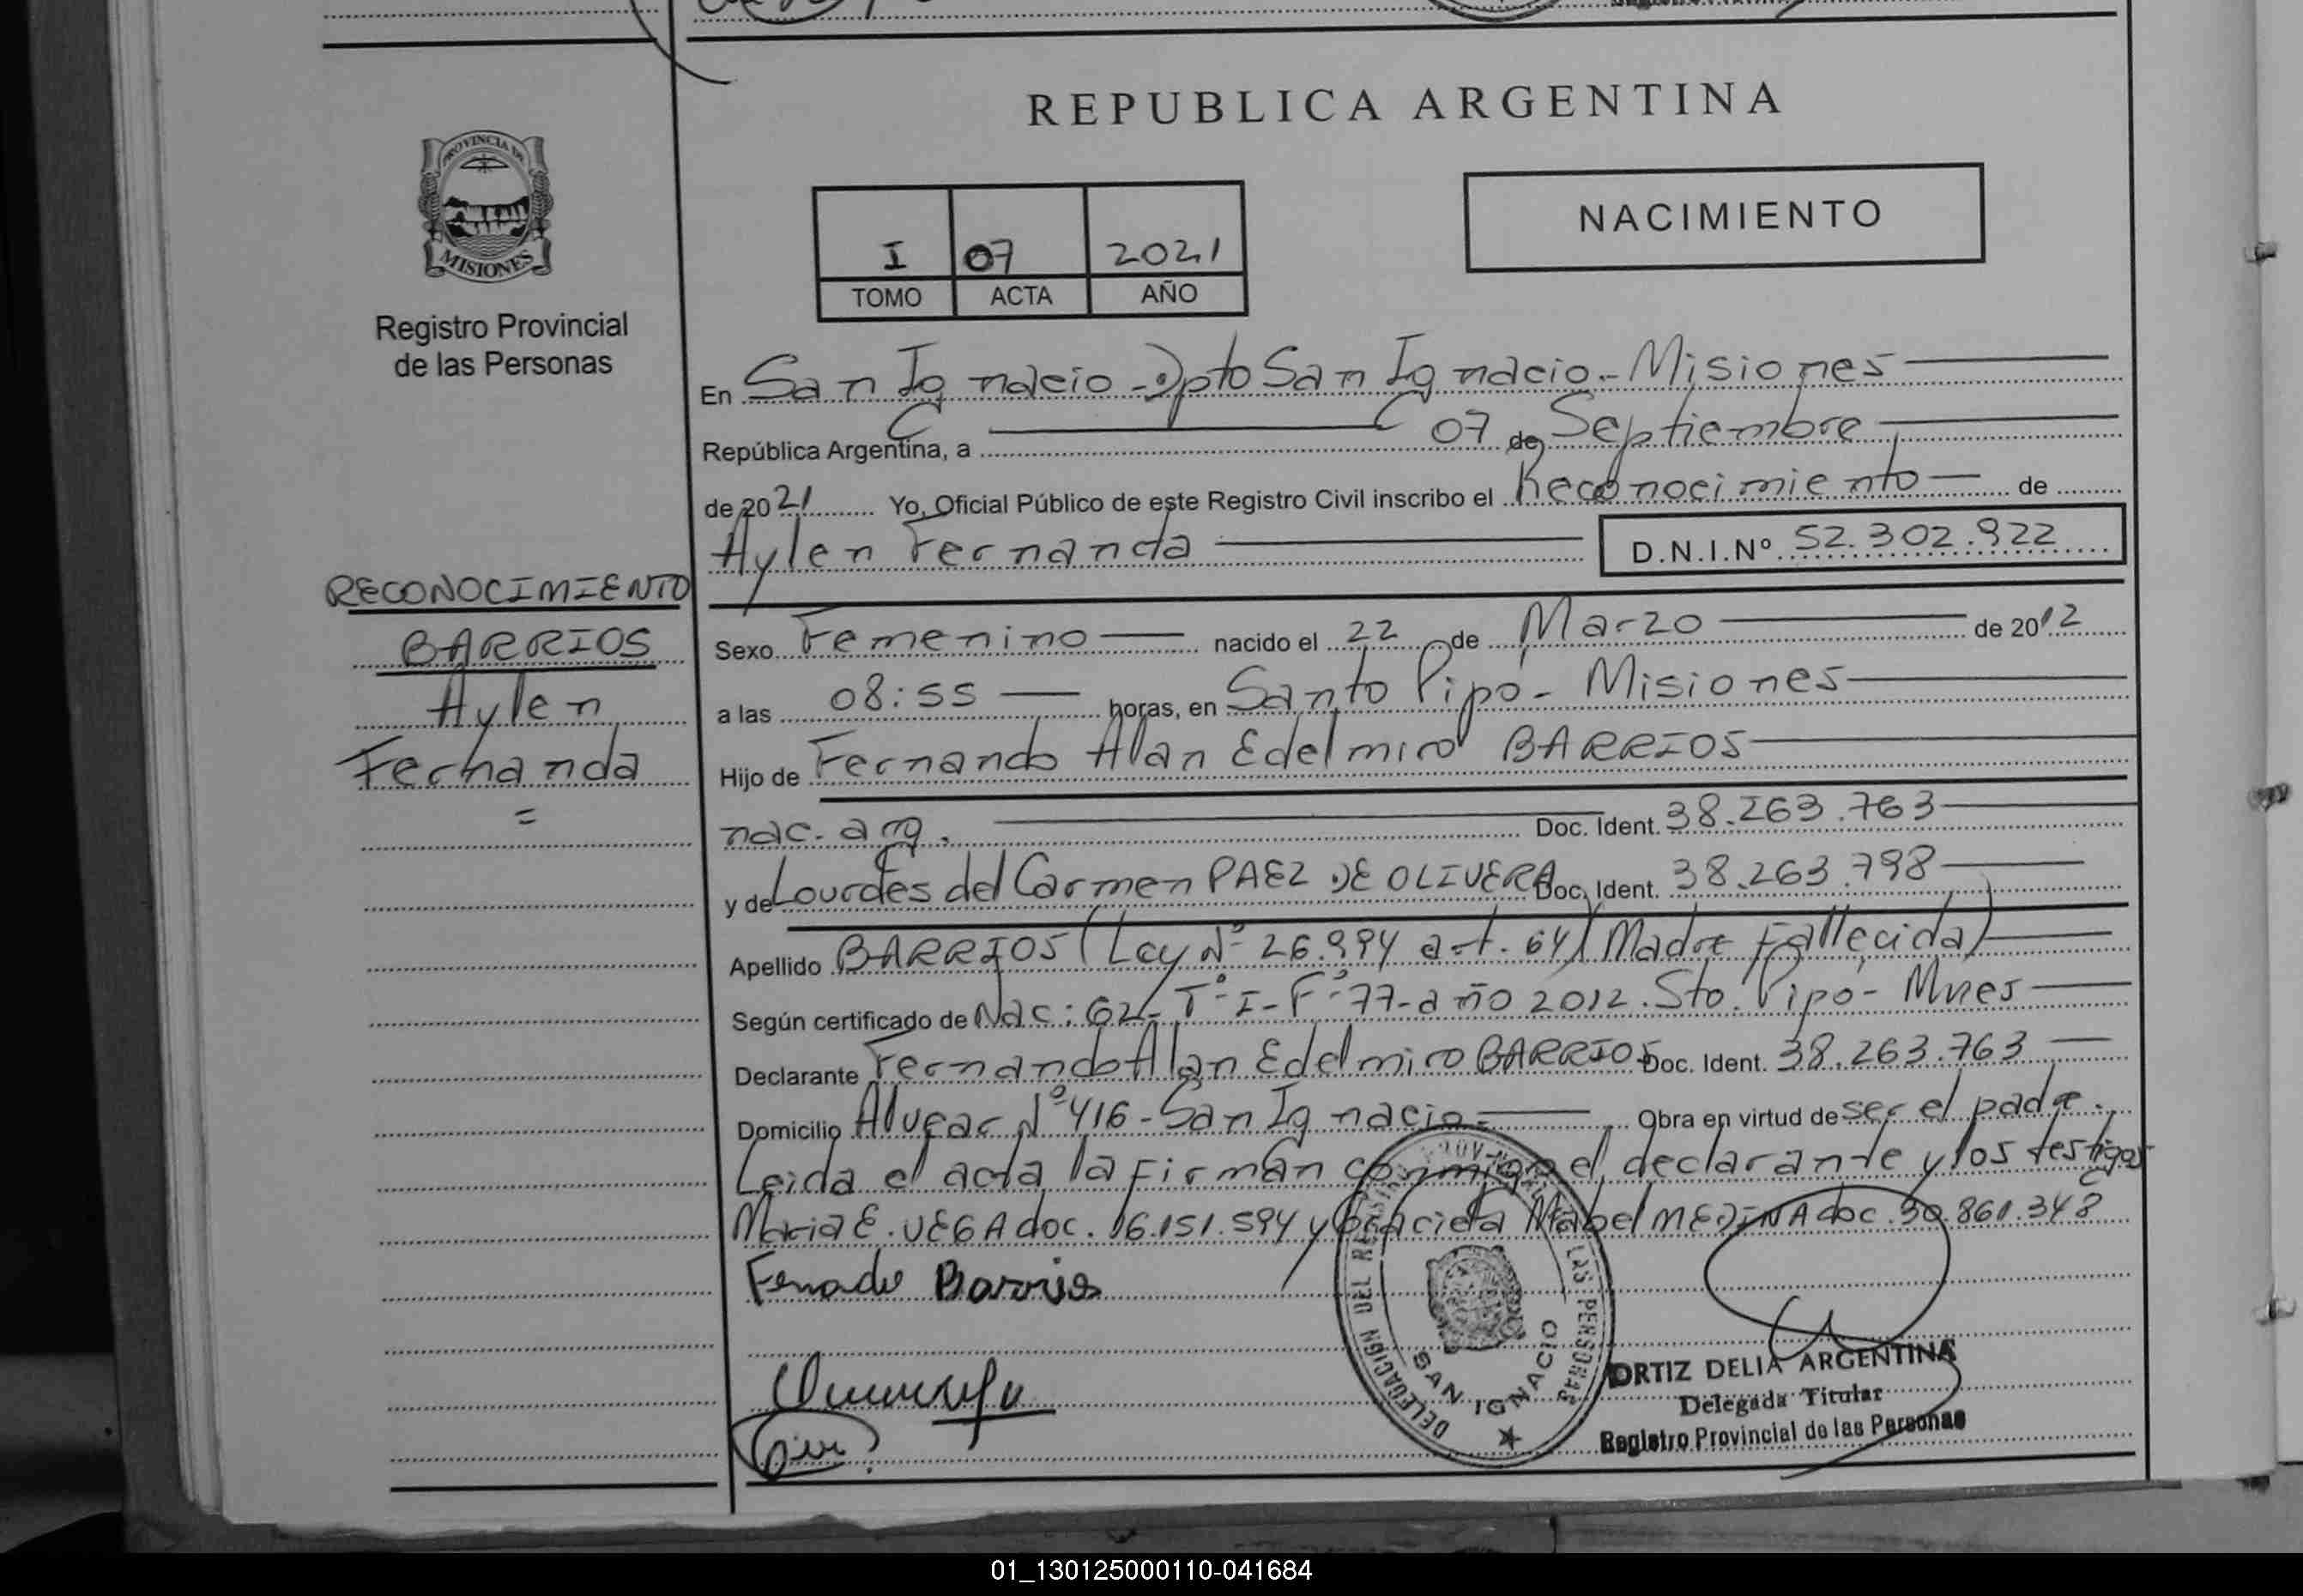 REPUBLICA ARGENTINA
PROVINCIA DE
MISIONES
Registro Provincial
de las Personas
NACIMIENTO
I 07 2021
TOMO ACTA AÑO
En San Ignacio - Dpto San Ignacio - Misiones
República Argentina, a 07 de Septiembre
de 2021 Yo, Oficial Público de este Registro Civil inscribo el Reconocimiento de
Aylen Fernanda D.N.I.Nº 52.302.922
RECONOCIMIENTO
BARRIOS
Aylen
Fernanda
=
Sexo Femenino nacido el 22 de Marzo de 2012
a las 08:55 horas, en Santo Pipó - Misiones
Hijo de Fernando Alan Edelmiro BARRIOS
nac. arg. Doc. Ident. 38.263.763
y de Lourdes del Carmen PAEZ DE OLIVERA Doc. Ident. 38.263.798
Apellido BARRIOS (Ley Nº 26.994 art. 64) (Madre Fallecida)
Según certificado de Nac: 62 - Tº I - Fº 77 - año 2012. Sto. Pipó - Mnes
Declarante Fernando Alan Edelmiro BARRIOS Doc. Ident. 38.263.763
Domicilio Alvear Nº 416 - San Ignacio - Obra en virtud de ser el padre.
Leida el acta la firman conmigo el declarante y los testigos
Maria E. VEGA doc. 16.151.594 y Graciela Mabel MEDINA doc. 30.861.348
Fernado Barrios
DELEGACIÓN DEL REGISTRO PROVINCIAL LAS PERSONAS
SAN IGNACIO
ORTIZ DELIA ARGENTINA
Delegada Titular
Registro Provincial de las Personas
01_130125000110-041684